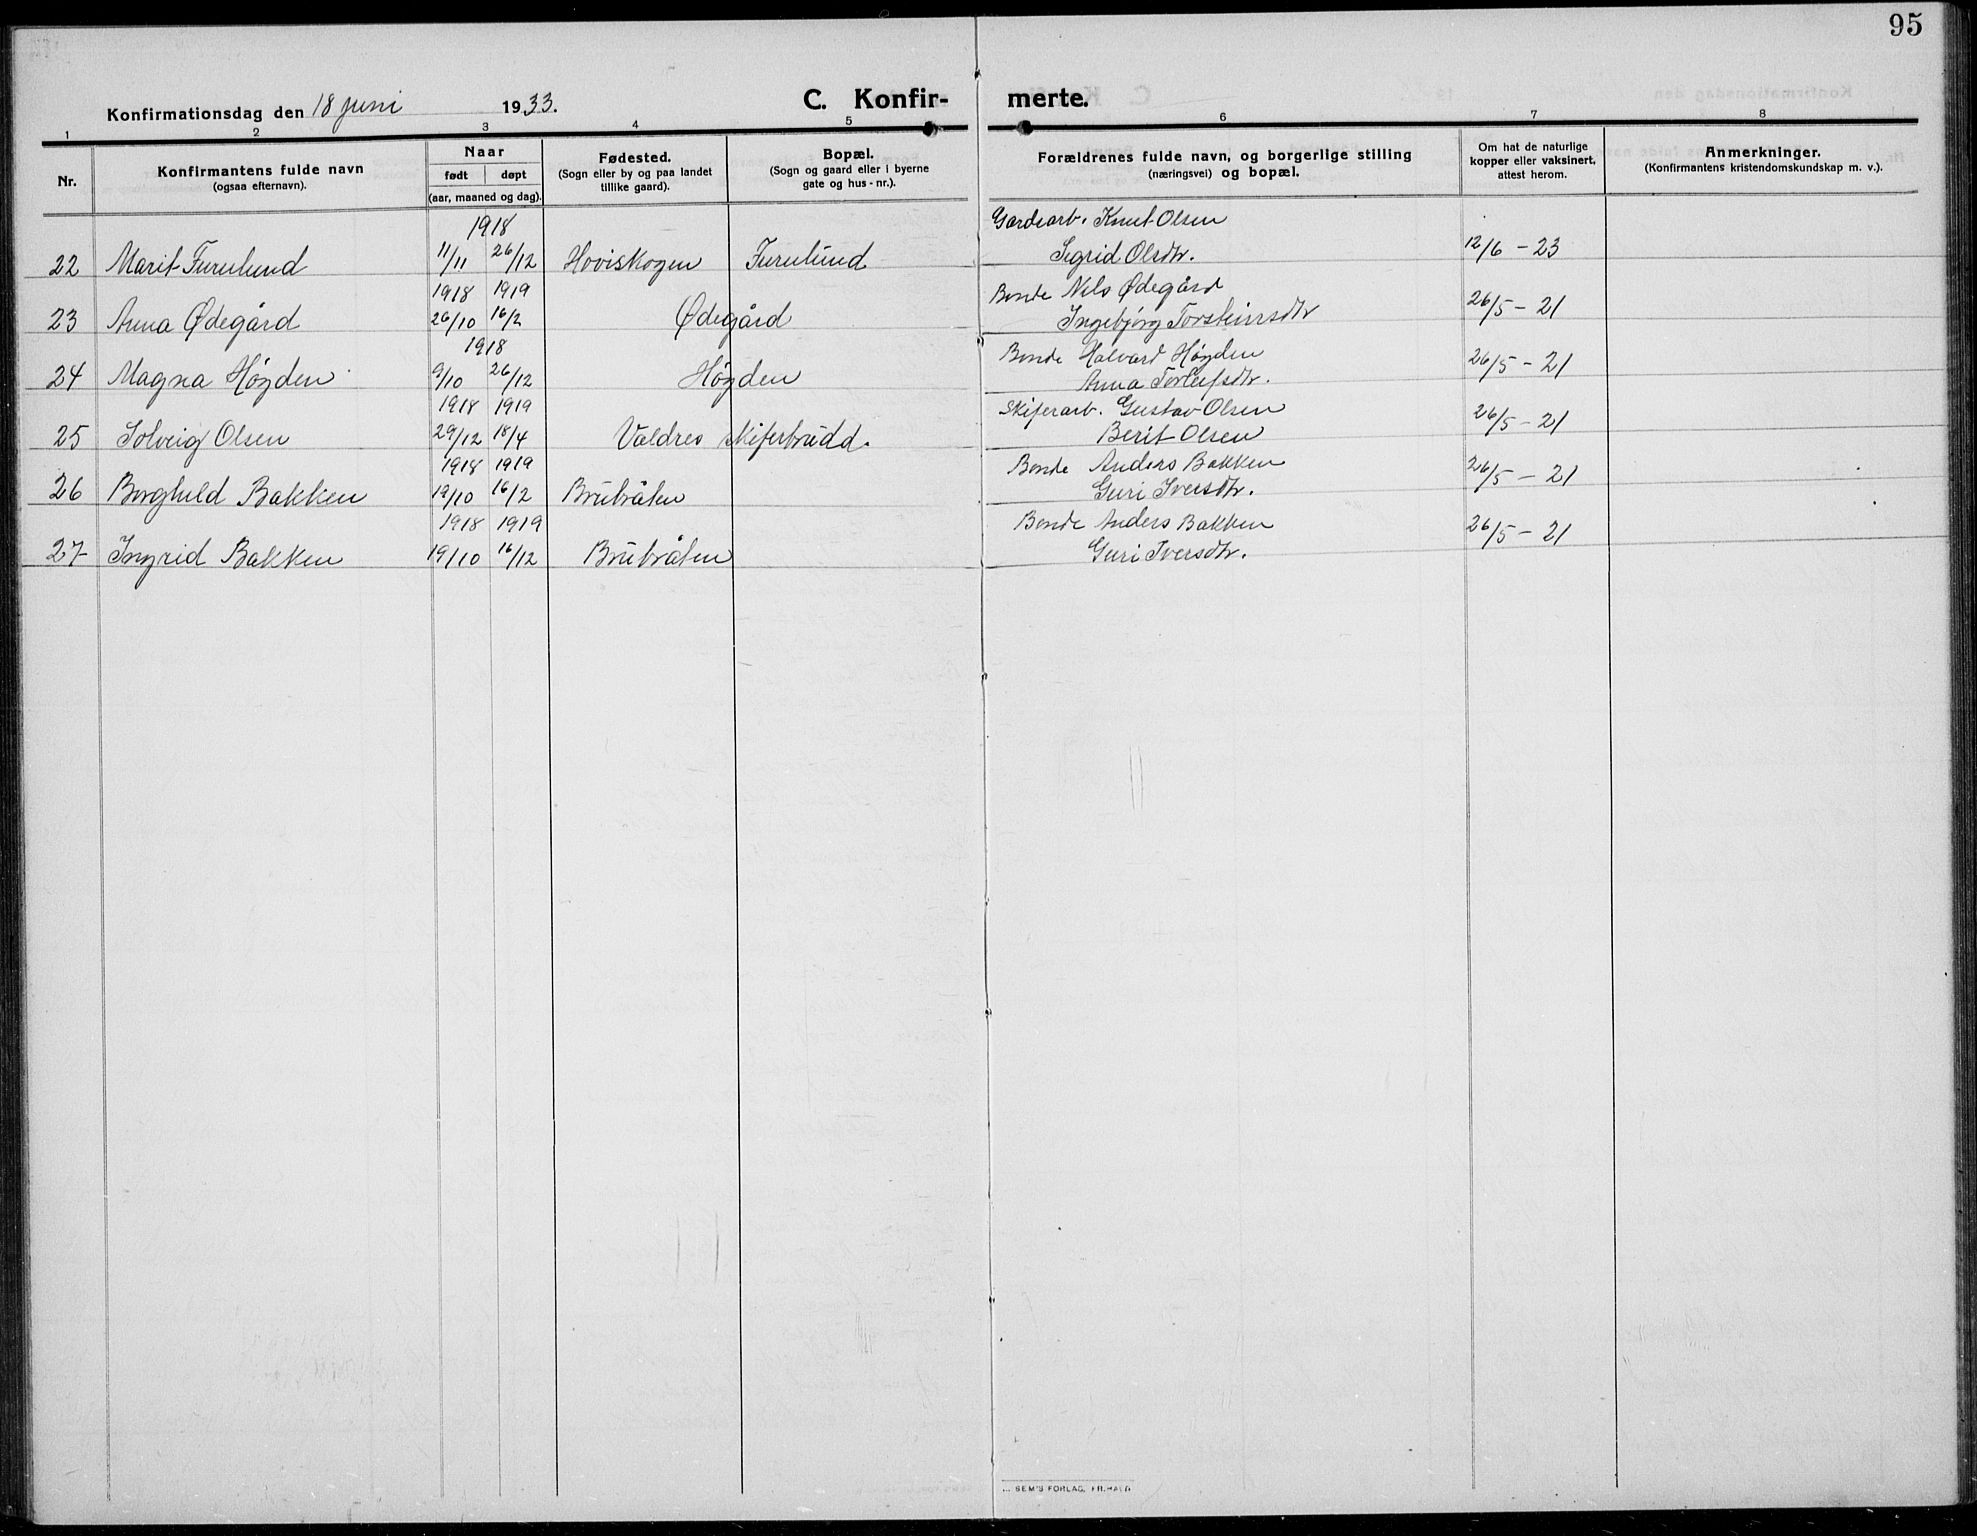 95
Konfirmationsdag den 18 juni 1933.
C. Konfir- merte.
1 2 3 4 5 6 7 8
Nr.
Konfirmantens fulde navn
(ogsaa efternavn).
Naar
født døpt
(aar, maaned og dag).
Fødested.
(Sogn eller by og paa landet
tillike gaard).
Bopæl.
(Sogn og gaard eller i byerne
gate og hus-nr.).
Forældrenes fulde navn, og borgerlige stilling
(næringsvei) og bopæl.
Om hat de naturlige
kopper eller vaksinert,
attest herom.
Anmerkninger.
(Konfirmantens kristendomskundskap m. v.).
1918 Gardearb. Knut Olsen
22 Marit Furulund 11/11 26/12 Hoviskogen Furulund Sigrid Olsdtr. 12/6 - 23
1918 1919 Bonde Nils Ødegård
23 Anna Ødegård 26/10 16/2 Ødegård Ingebjørg Torsteinsdtr 26/5 - 21
1918 Bonde Halvard Høyden
24 Magna Høyden 9/10 26/12 Høyden Anna Torleifsdtr. 26/5 - 21
1918 1919 Skiferarb. Gustav Olsen
25 Solveig Olsen 29/12 18/4 Valdres skiferbrudd. Berit Olsen 26/5 - 21
1918 1919 Bonde Anders Bakken
26 Borghild Bakken 19/10 16/2 Brubråten Guri Iversdtr. 26/5 - 21
1918 1919 Bonde Anders Bakken
27 Ingrid Bakken 19/10 16/12 Brubråten Guri Iversdtr. 26/5 - 21
SEM'S FORLAG, FR.HALD